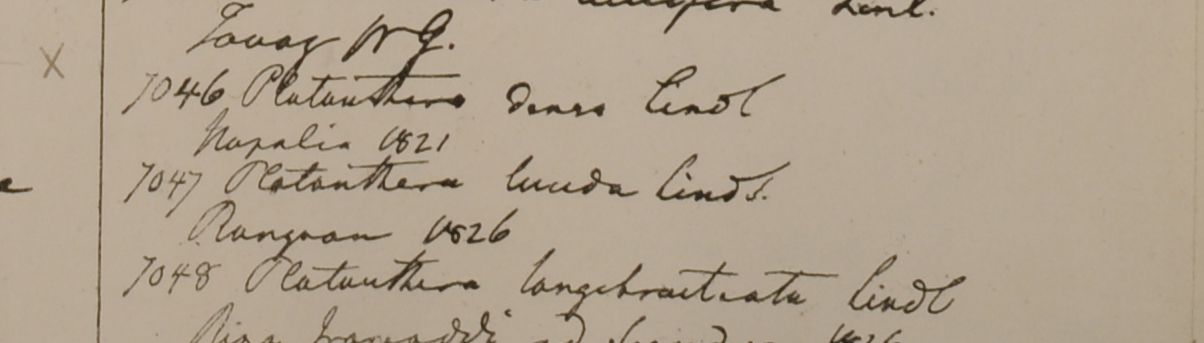 Lindl.
Tavoy W G.
7046 Platanthera densa Lindl
Napalia 1821
7047 Platanthera lucida Lindl.
Rangoon 1826
7048 Platanthera longebracteata Lindl
Ripa Irawaddi ad 1826